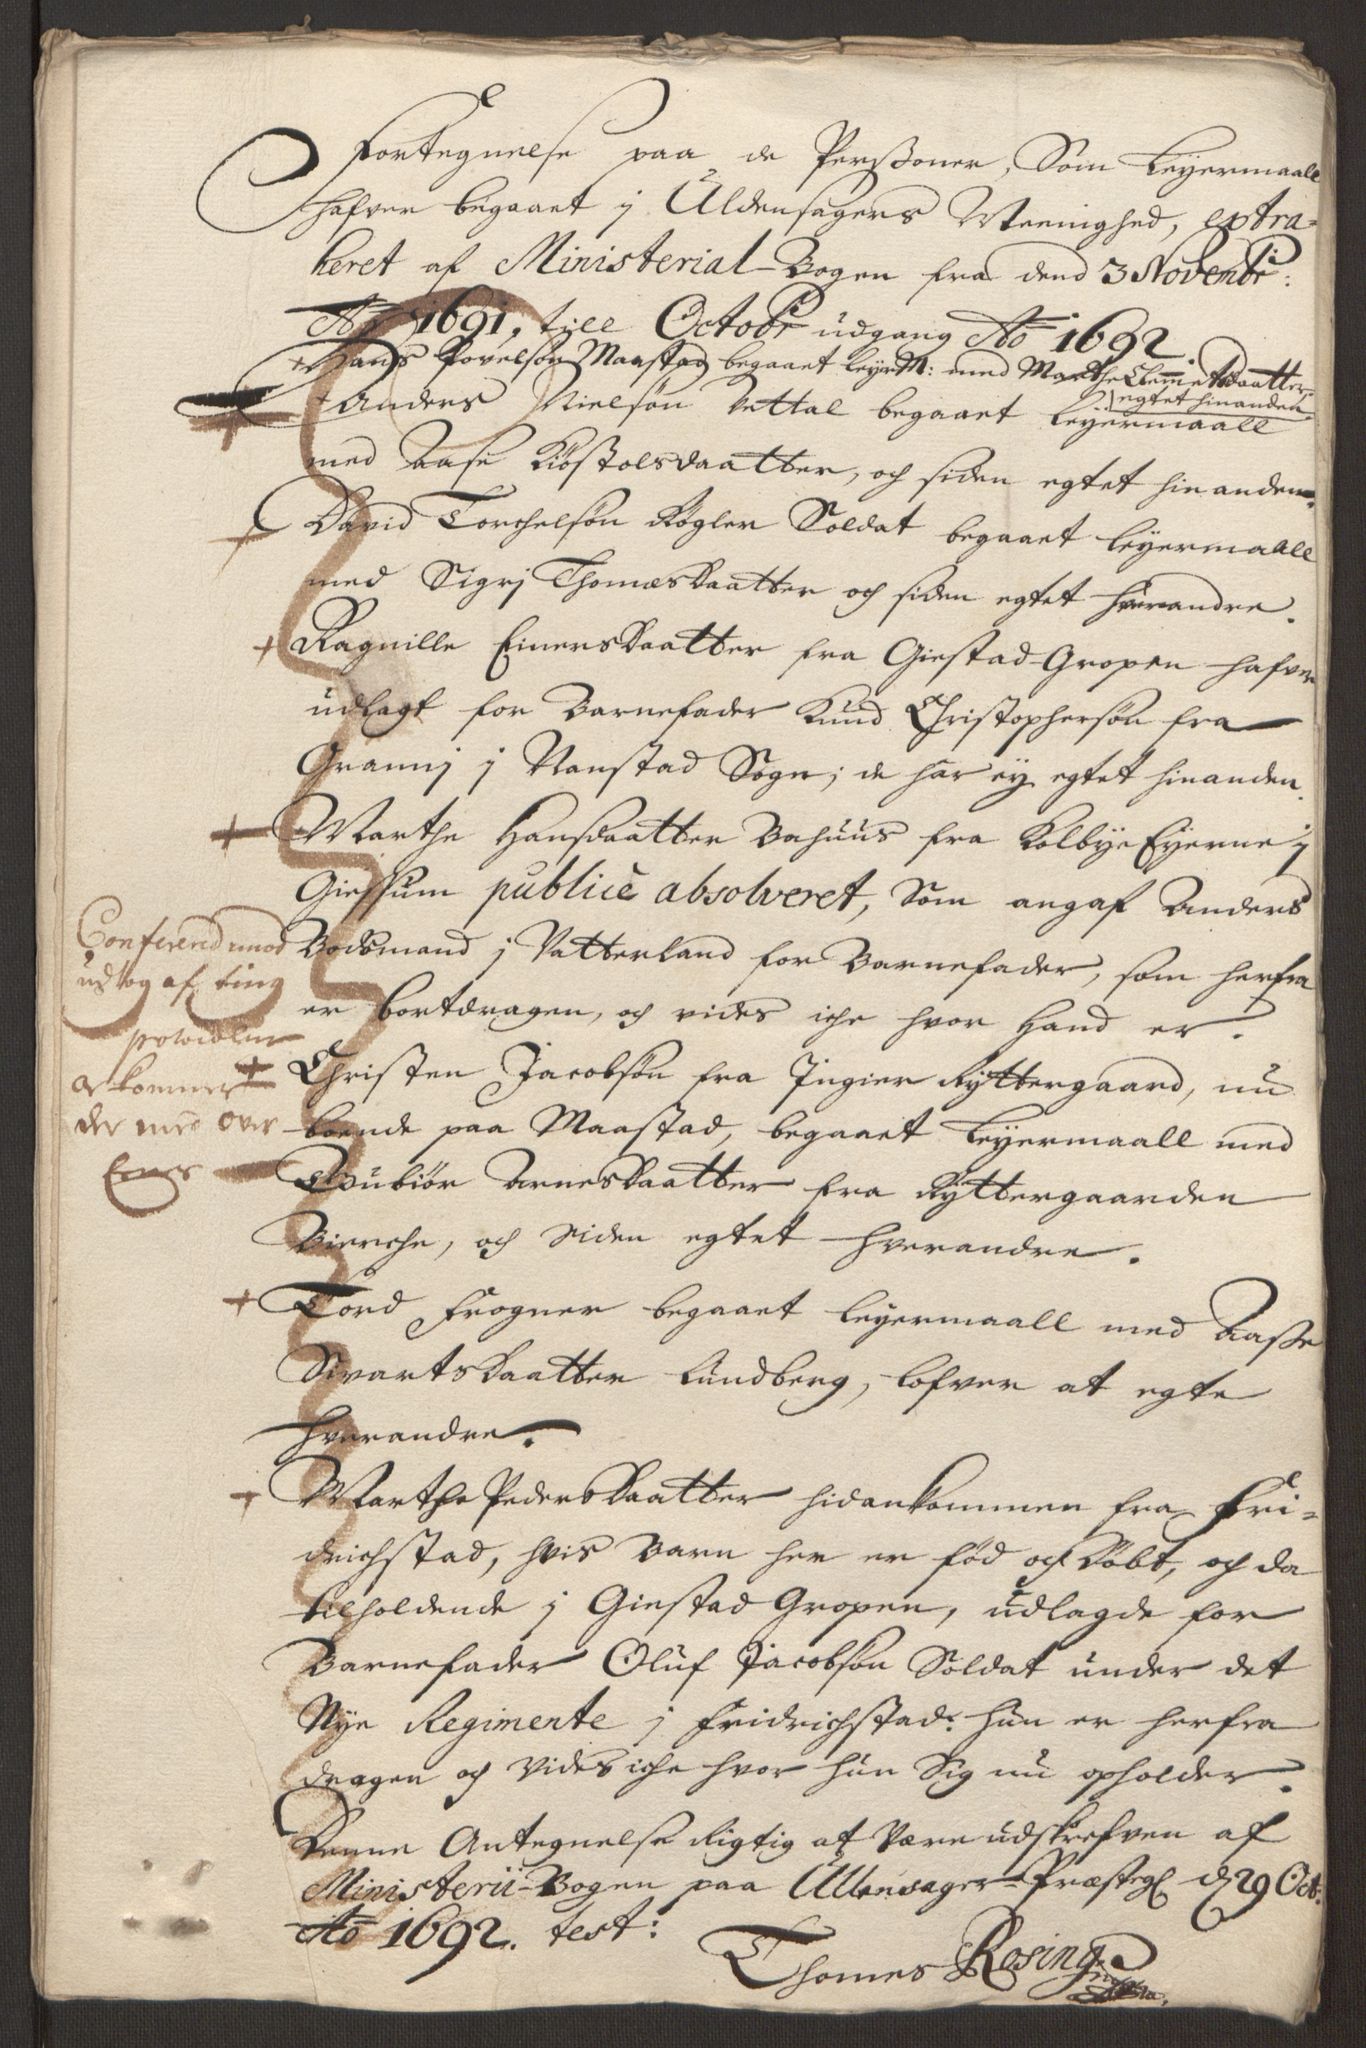 Fortegnelse paa de Personer, Som Leyermaall
hafver begaaet j Uldensagers Meenighed, extra-
heret af Ministerial-Bogen fra dend 3 Novembr:
Ao 1691, till Octobr udgang Ao 1692
Hans Povelsøn Maastad begaaet leyrM: med Marthe Clemmetsdaatter
egtet hinanden.
Anders Nielsøn Vettal begaaet Leyermaall
med Aase Kiøstolsdaatter, och siden egtet hinanden.
David Torchelsøn Røgler Soldat begaaet leyermaall
med Sigrj Thomæsdaatter och siden egtet hverandre.
Ragnille Einersdaatter fra Giestad-Gropen hafver
udlagt for Barnefader Knud Christophersøn fra
Grannj j Nanstad Sogn; de har ey egtet hinanden.
Marthe Hansdaatter Bahuus fra Kolbye Eyerne j
Giessum publicè absolveret, Som angaf Anders
Bodsmand j Vatterland for Barnefader, som herfra
er bortdragen, och vides iche hvor Hand er.
Christen Jacobsøn fra Ingier Ryttergaard, nu
boende paa Maastad, begaaet Leyermaall med
Gubiør Arnesdaatter fra Ryttergaarden
Bierche, och siden egtet hverandre.
Tord Frogner begaaet leyermaall med Aasse
Sivartsdaatter Lundberg, lofver at egte
hverandre.
Marthe Pedersdaatter hidankommen fra Fri-
drichstad, hvis Barn her er fød och døbt, och da
tilholdende j Giestad Gropen, udlagde for
Barnefader Oluf Jacobsøn Soldat under det
Nye Regimente j Fridrichstad: hun er herfra
dragen och vides iche hvor hun Sig nu opholder.
Denne Antegnelse Rigtig at være udskrefven af
Ministerii-Bogen paa Ullensager-Præstegl d. 29 Oct:
Ao 1692. test:
Thomes Rosing
Conferered mod
udtog af ting
protocollen
or kommer
der med over
Eens